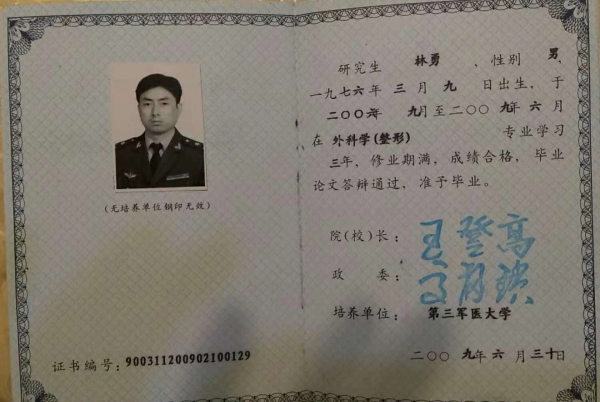 (无培养单位钢印无效)
证书编号: 900311200902100129
研究生 林勇 ,性别 男,
一九七六年 三 月 九 日出生, 于
二〇〇六年 九月至二〇〇九年六月
在 外科学(整形) 专业学习
三年, 修业期满, 成绩合格, 毕业
论文答辩通过, 准予毕业。
院(校)长: 王登高
政 委:
培养单位: 第三军医大学
二〇〇九年六月三十日